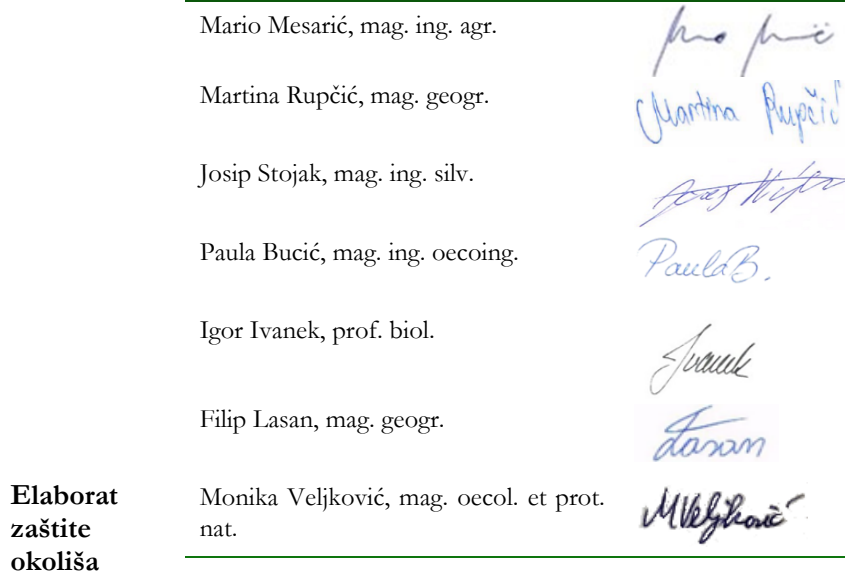 Mario Mesarić, mag. ing. agr.
Martina Rupčić, mag. geogr.
Martina Rupčić
Josip Stojak, mag. ing. silv.
Paula Bucić, mag. ing. oecoing.
PaulaB.
Igor Ivanek, prof. biol.
Ivanek
Filip Lasan, mag. geogr.
Lasan
Elaborat
zaštite
okoliša
Monika Veljković, mag. oecol. et prot.
nat.
MVeljković